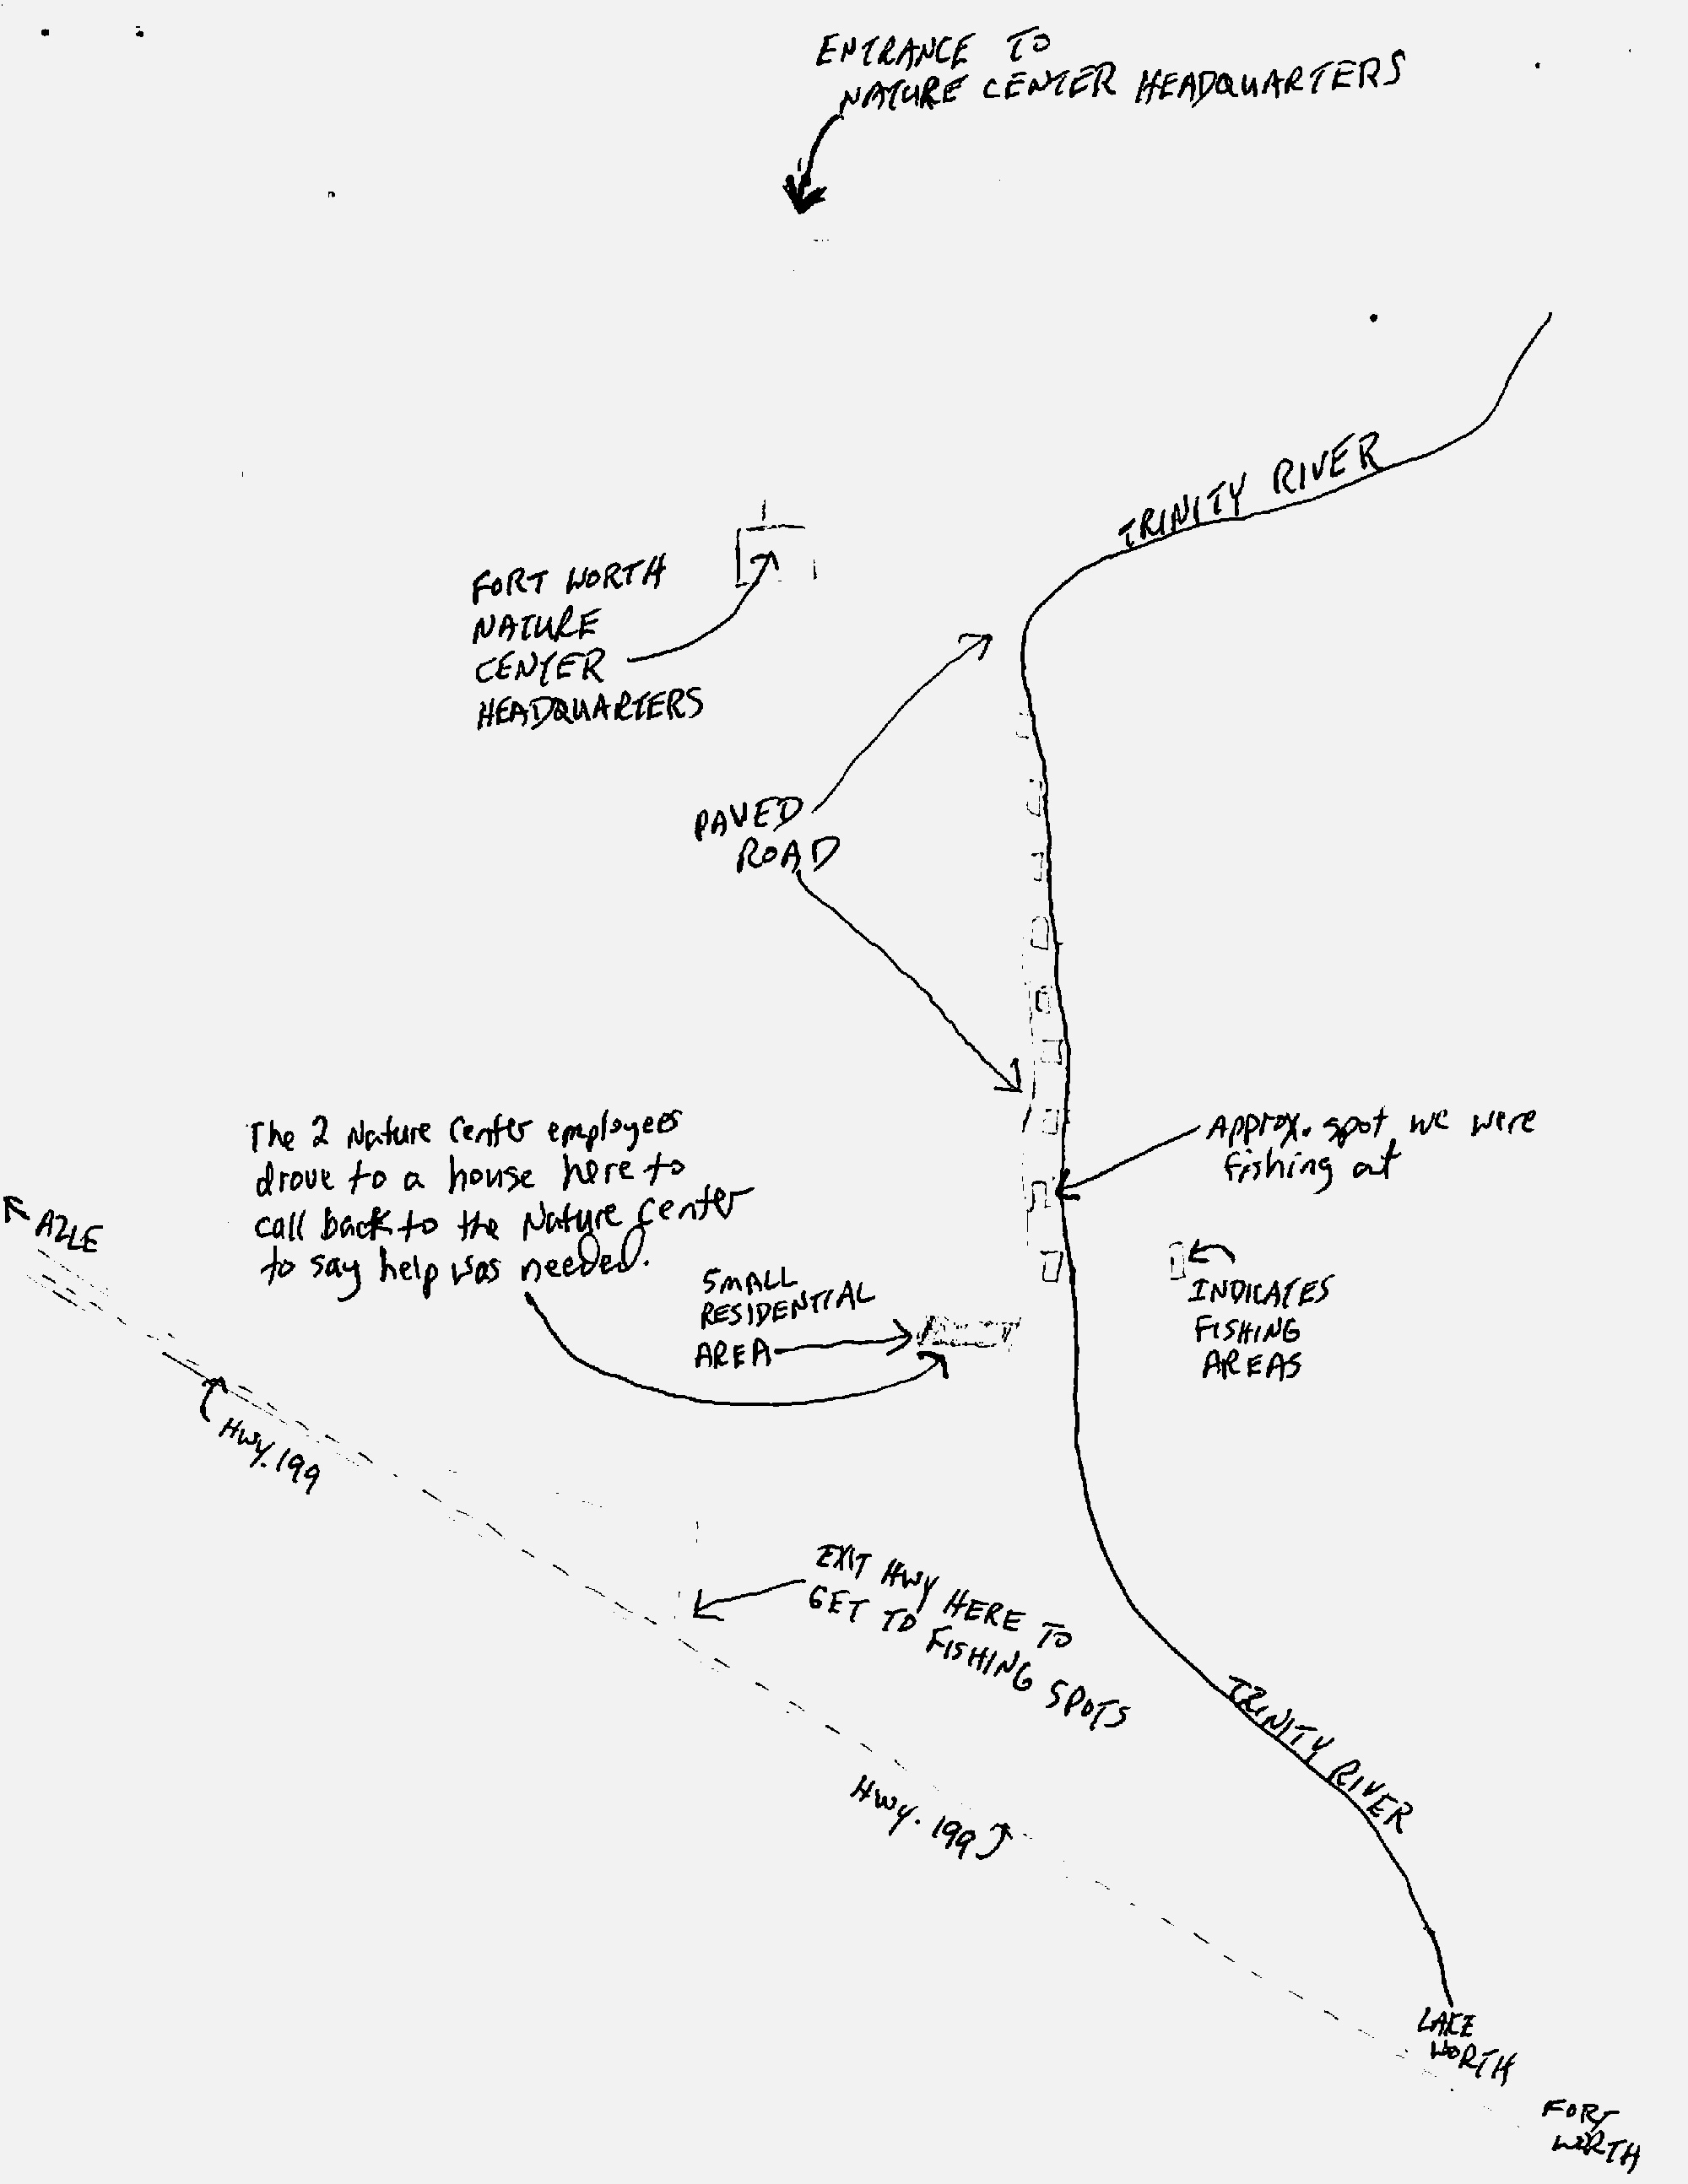 ENTRANCE TO
NATURE CENTER HEADQUARTERS
TRINITY RIVER
FORT WORTH
NATURE
CENTER
HEADQUARTERS
PAVED
ROAD
The 2 Nature Center employees
drove to a house here to
call back to the Nature Center
to say help was needed.
Approx. spot we were
fishing at
AZLE
SMALL
RESIDENTIAL
AREA
INDICATES
FISHING
AREAS
Hwy. 199
EXIT HWY HERE TO
GET TO FISHING SPOTS
TRINITY RIVER
Hwy. 199
LAKE
WORTH
FORT
WORTH